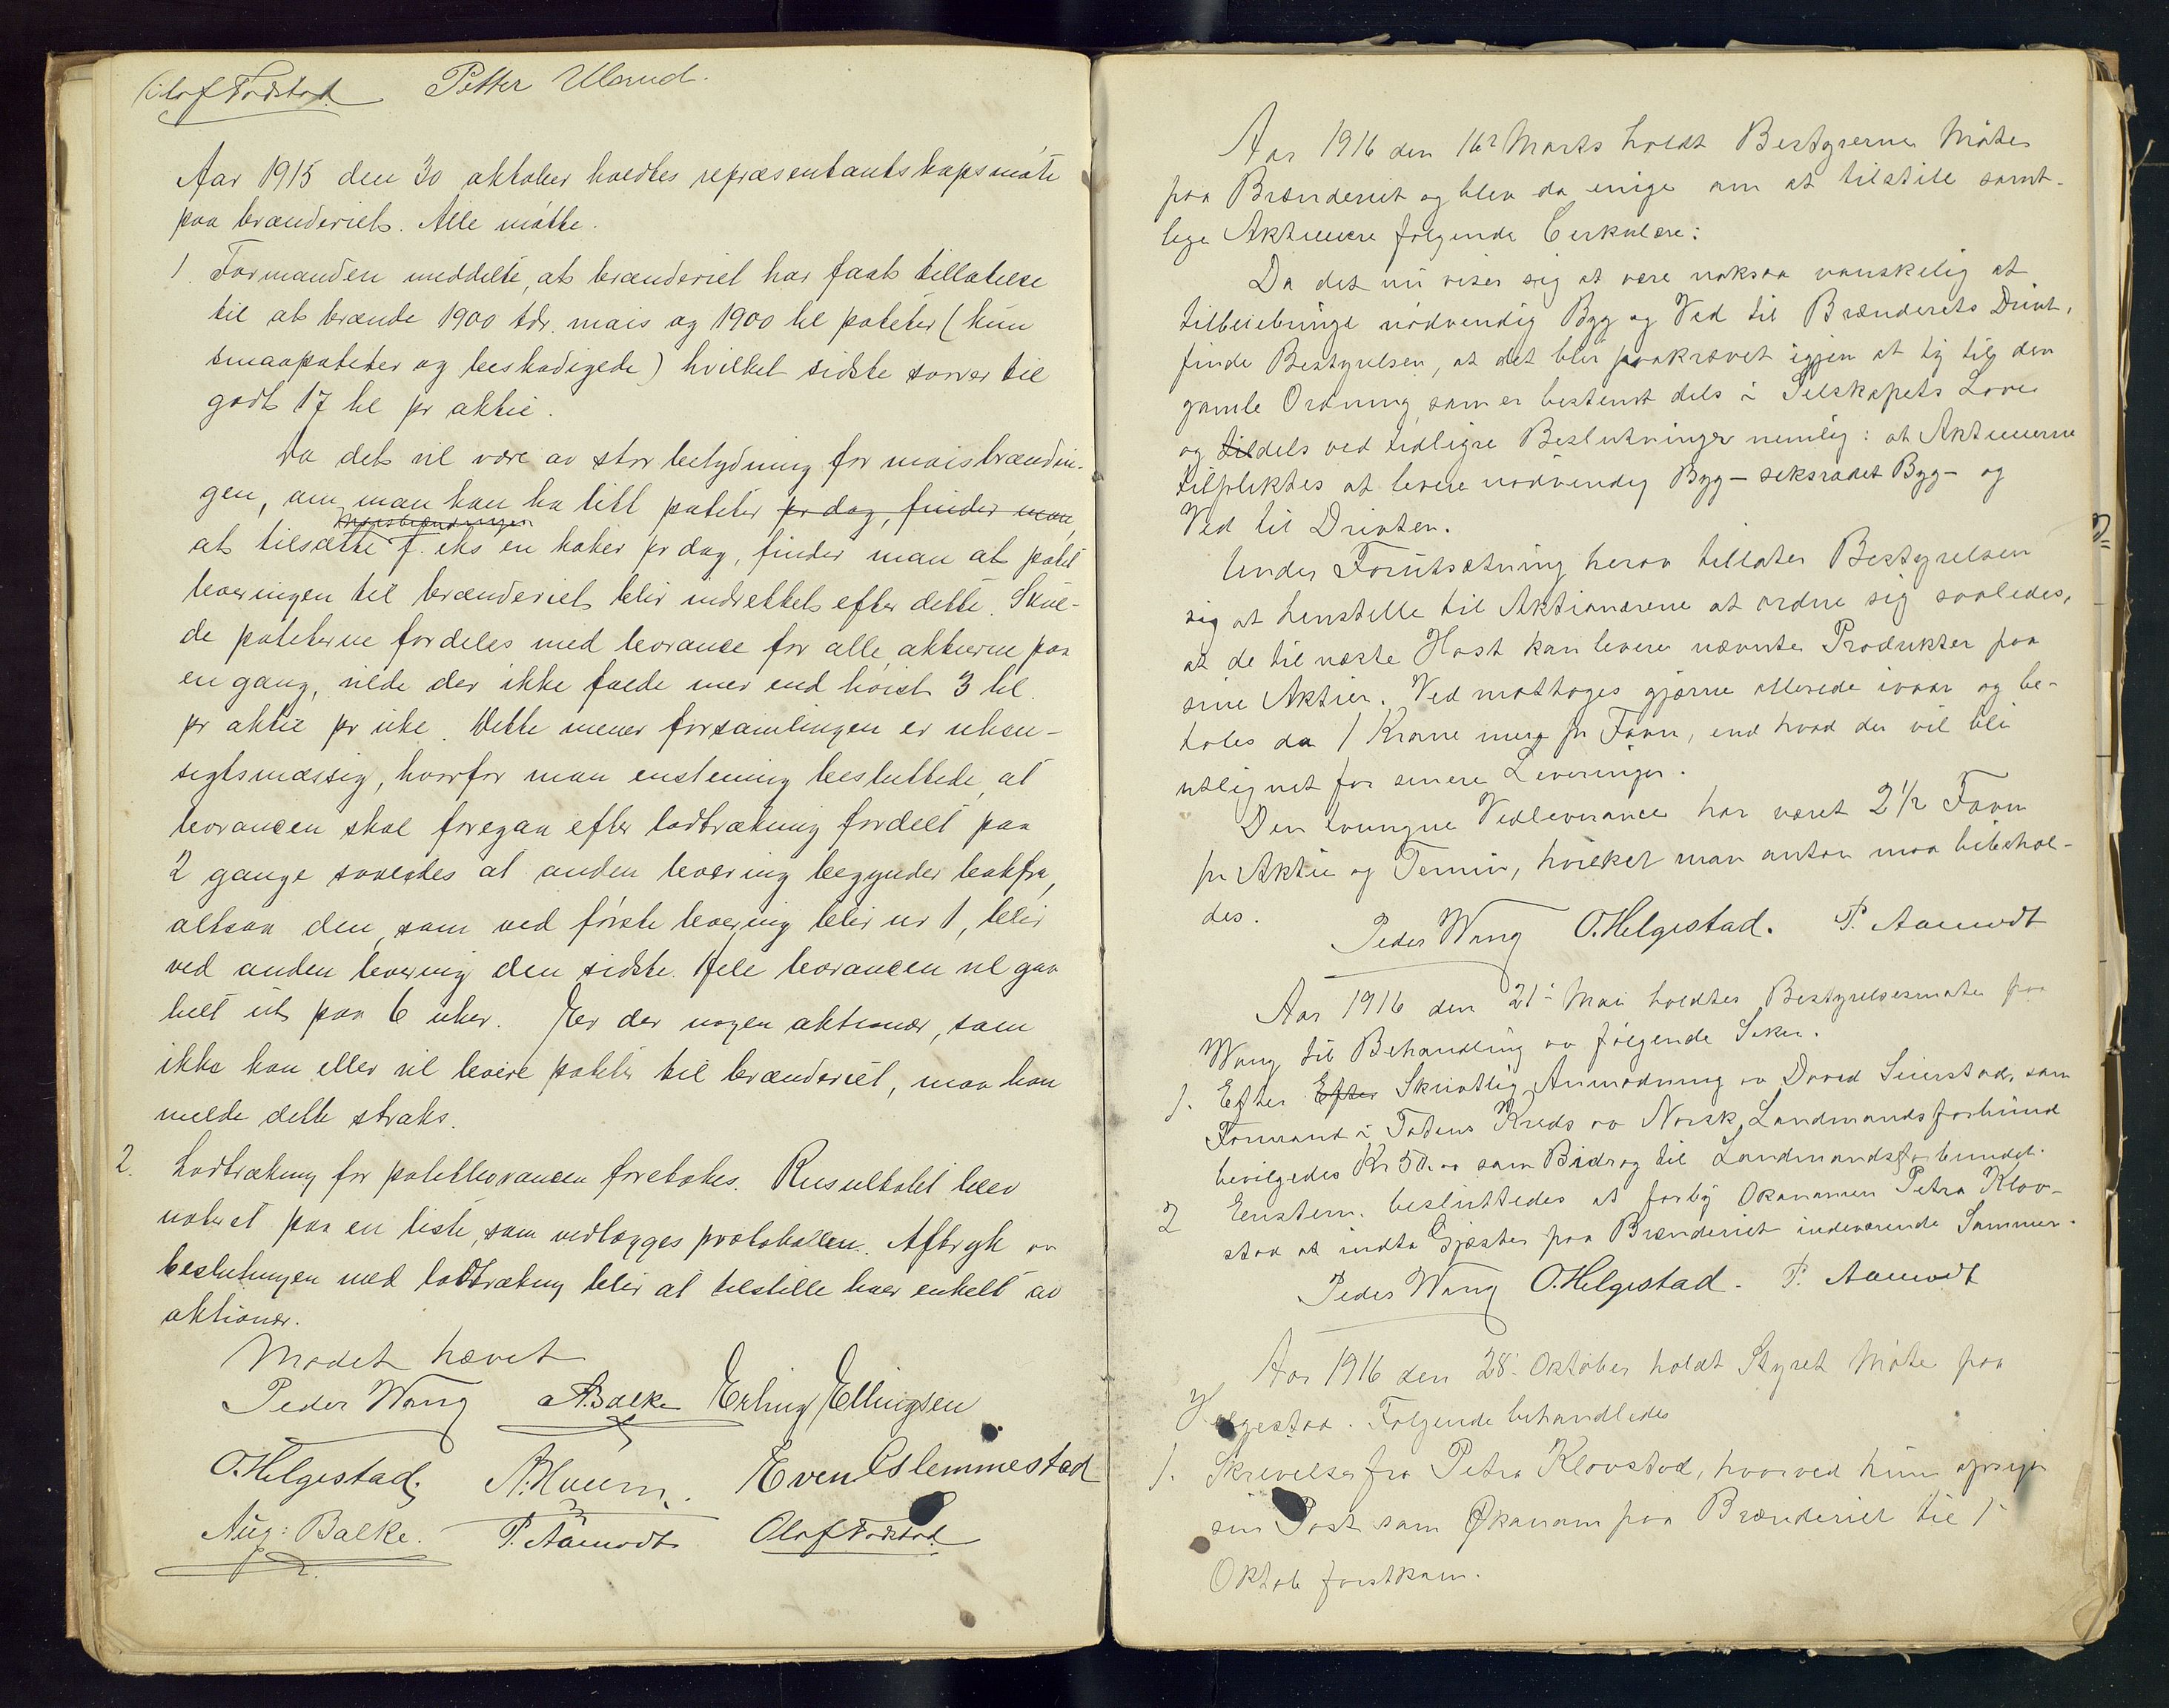 Olaf Fodstad Petter Ulsrud.
Aar 1915 den 30 oktober holdtes repræsentantskapsmöte
paa brænderiet. Alle mötte.
1. Formanden meddelte, at brænderiet har faat tillatelse
til at brænde 1900 tdr. mais og 1900 hl poteter (kun
smaapoteter og beskadigede) hvilket sidste svarer til
godt 17 hl pr aktie.
Da det vil være av stor betydning for maisbrændin-
gen, om man kan ha litt poteter pr dag, finder man,
maisbrændningen
at tilsætte f. eks en koker pr dag, finder man at potet
leveringen til brænderiet blir indrettet efter dette. Skul-
de poteterne fordeles med leverance for alle aktierne paa
en gang, vilde der ikke falde mer end höist 3 hl.
pr aktie pr uke. Dette mener forsamlingen er uhen-
sigtsmæssig, hvorfor man enstemmig besluttede, at
leverancen skal foregaa efter lodtrækning fordelt paa
2 gange saaledes at anden levering begynder bakfra,
altsaa den, som ved förste levering blir nr 1, blir
ved anden levering den sidste. Hele leverancen vil gaa
helt ut paa 6 uker. Er der nogen aktionær, som
ikke kan eller vil levere poteter til brænderiet, maa han
melde dette straks.
2. Lodtrækning for potetleverancen foretokes. Resultatet blev
noteret paa en liste, som vedlægges protokollen. Aftryk av
beslutningen med lodtrækning blir at tilstille hver enkelt av
aktionær.
Mødet hævet
Peder Wang A. Balke Erling Ellingsen
O. Helgestad. A. Huun. Even Eslemmestad
Aug: Balke. P. Aamodt Olaf Fodstad
Aar 1916 den 16de Marts holdt Bestyrerne Møte
paa Brænderiet og blev da enige om at tilstille samt-
lige Aktieeiere følgende Cirkulære:
Da det nu viser sig at være noksaa vanskelig at
tilveiebringe nødvendig Byg og Ved til Brænderiets Drivt,
finder Bestyrelsen, at det blir paakrævet igjen at ty til den
gamle Ordning som er bestemt dels i Selskapets Love
og tildels ved tidligre Beslutninger nemlig: at Aktieeierne
tilpliktes at levere nødvendig Byg - seksradet Byg - og
Ved til Drivten.
Under Forutsætning herav tillater Bestyrelsen
sig at henstille til Aktionærene at ordne sig saaledes,
at de til næste Høst kan levere nævnte Produkter paa
sine Aktier. Ved mottages gjerne allerede ivaar og be-
tales da 1 Krone mer pr Favn, end hvad der vil bli
utlignet for senere Leveringer.
Den tvungne Vedleverance har været 2 1/2 Favn
pr Aktie og Termin, hvilket man antar maa bibehol-
des.
Peder Wang O. Helgestad. P. Aamodt
Aar 1916 den 21de Mai holdtes Bestyrelsesmøte paa
Wang til Behandling av følgende Saker.
1. Efter Efter Skrivtlig Anmodning av David Seierstad, som
Formand i Totens Kreds av Norsk Landmandsforbund
bevilgedes Kr 50.00 som Bidrag til Landmandsforbundet.
2 Enstem. besluttedes at forby Økonomen Petra Klov-
stad at indta Gjæster paa Brænderiet indeværende Sommer.
Peder Wang O. Helgestad. P. Aamodt
Aar 1916 den 28. Oktober holdt Styret Møte paa
Helgestad. Følgende behandledes
1. Skrivelse fra Petra Klovstad, hvorved hun opsiger
sin Post som Økonom paa Brænderiet til 1
Oktob førstkom.